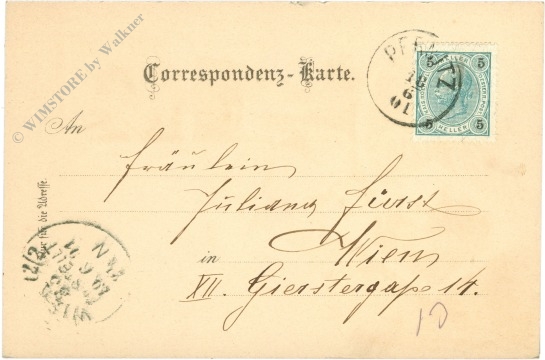 © WIMSTORE by Walkner
Correspondenz-Karte.
5 5
HELLER
5 5
16
6
01
An
Fräulein
Juliana Fürst
in Wien
XII. Gierstergaße 14.
Nur für die Adresse.
WIEN
12/2
10